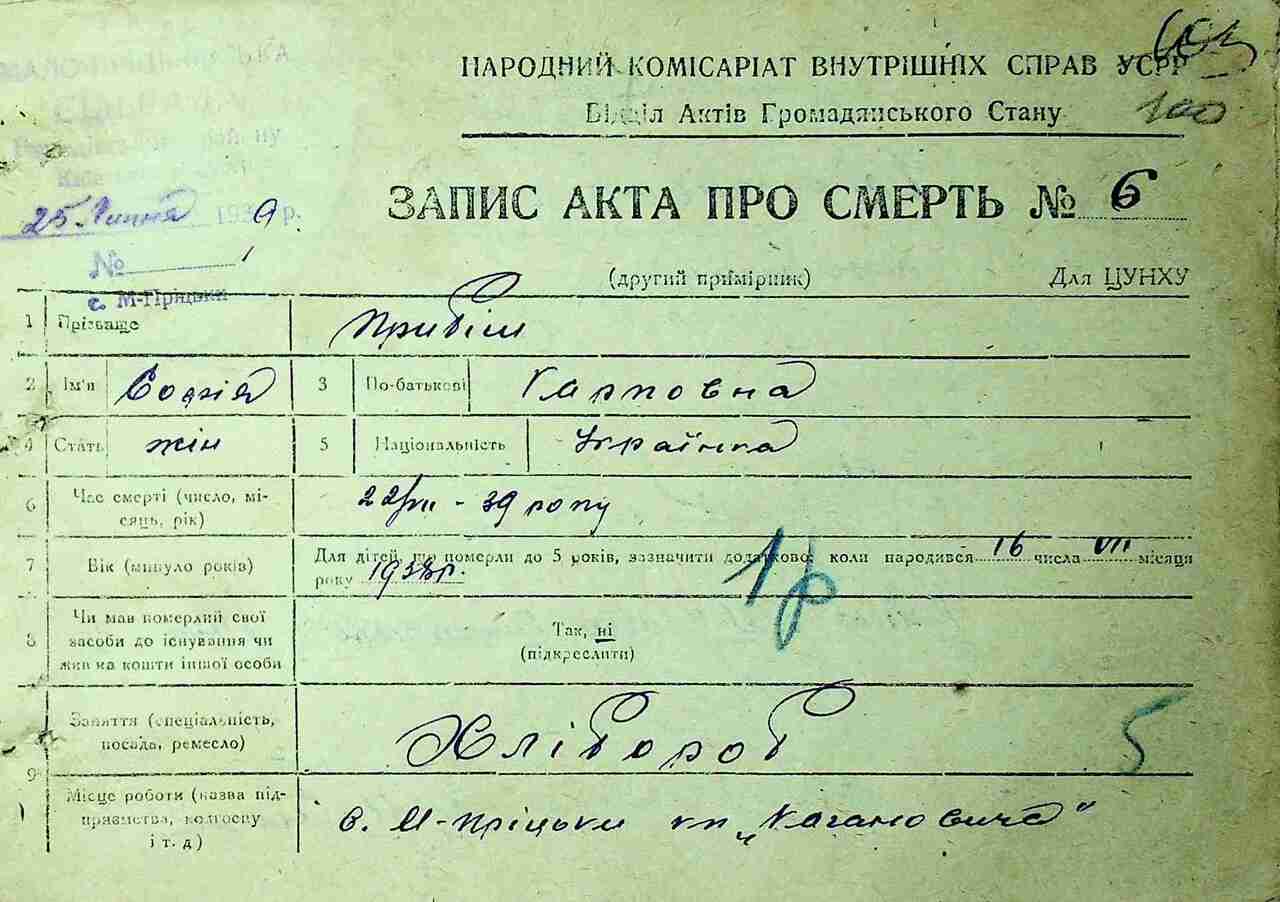 НАРОДНИЙ КОМІСАРІАТ ВНУТРІШНІХ СПРАВ УСРР
Відділ Актів Громадянського Стану
100
25 Липня 1939 р.
ЗАПИС АКТА ПРО СМЕРТЬ № 6
№ 1
(другий примірник) Для ЦУНХУ
с. М-Пріцьки
1 Прізваще Прибіш
2 Ім'я Софія 3 По-батькові Карповна
4 Стать жін 5 Національність Українка
6 Час смерті (число, мі-
сяць, рік) 22/VII - 39 року
7 Вік (минуло років) Для дітей, що померли до 5 років, зазначити додатково: коли народився 16 числа VII місяця
року 1938р.
1р
8 Чи мав померлий свої
засоби до існування чи
жив на кошти іншої особи
Так, ні
(підкреслити)
9 Заняття (спеціальність,
посада, ремесло) Хлібороб
5
Місце роботи (назва під-
приємства, колгоспу
і т. д) с. М-Пріцьки кп „Кагановича"